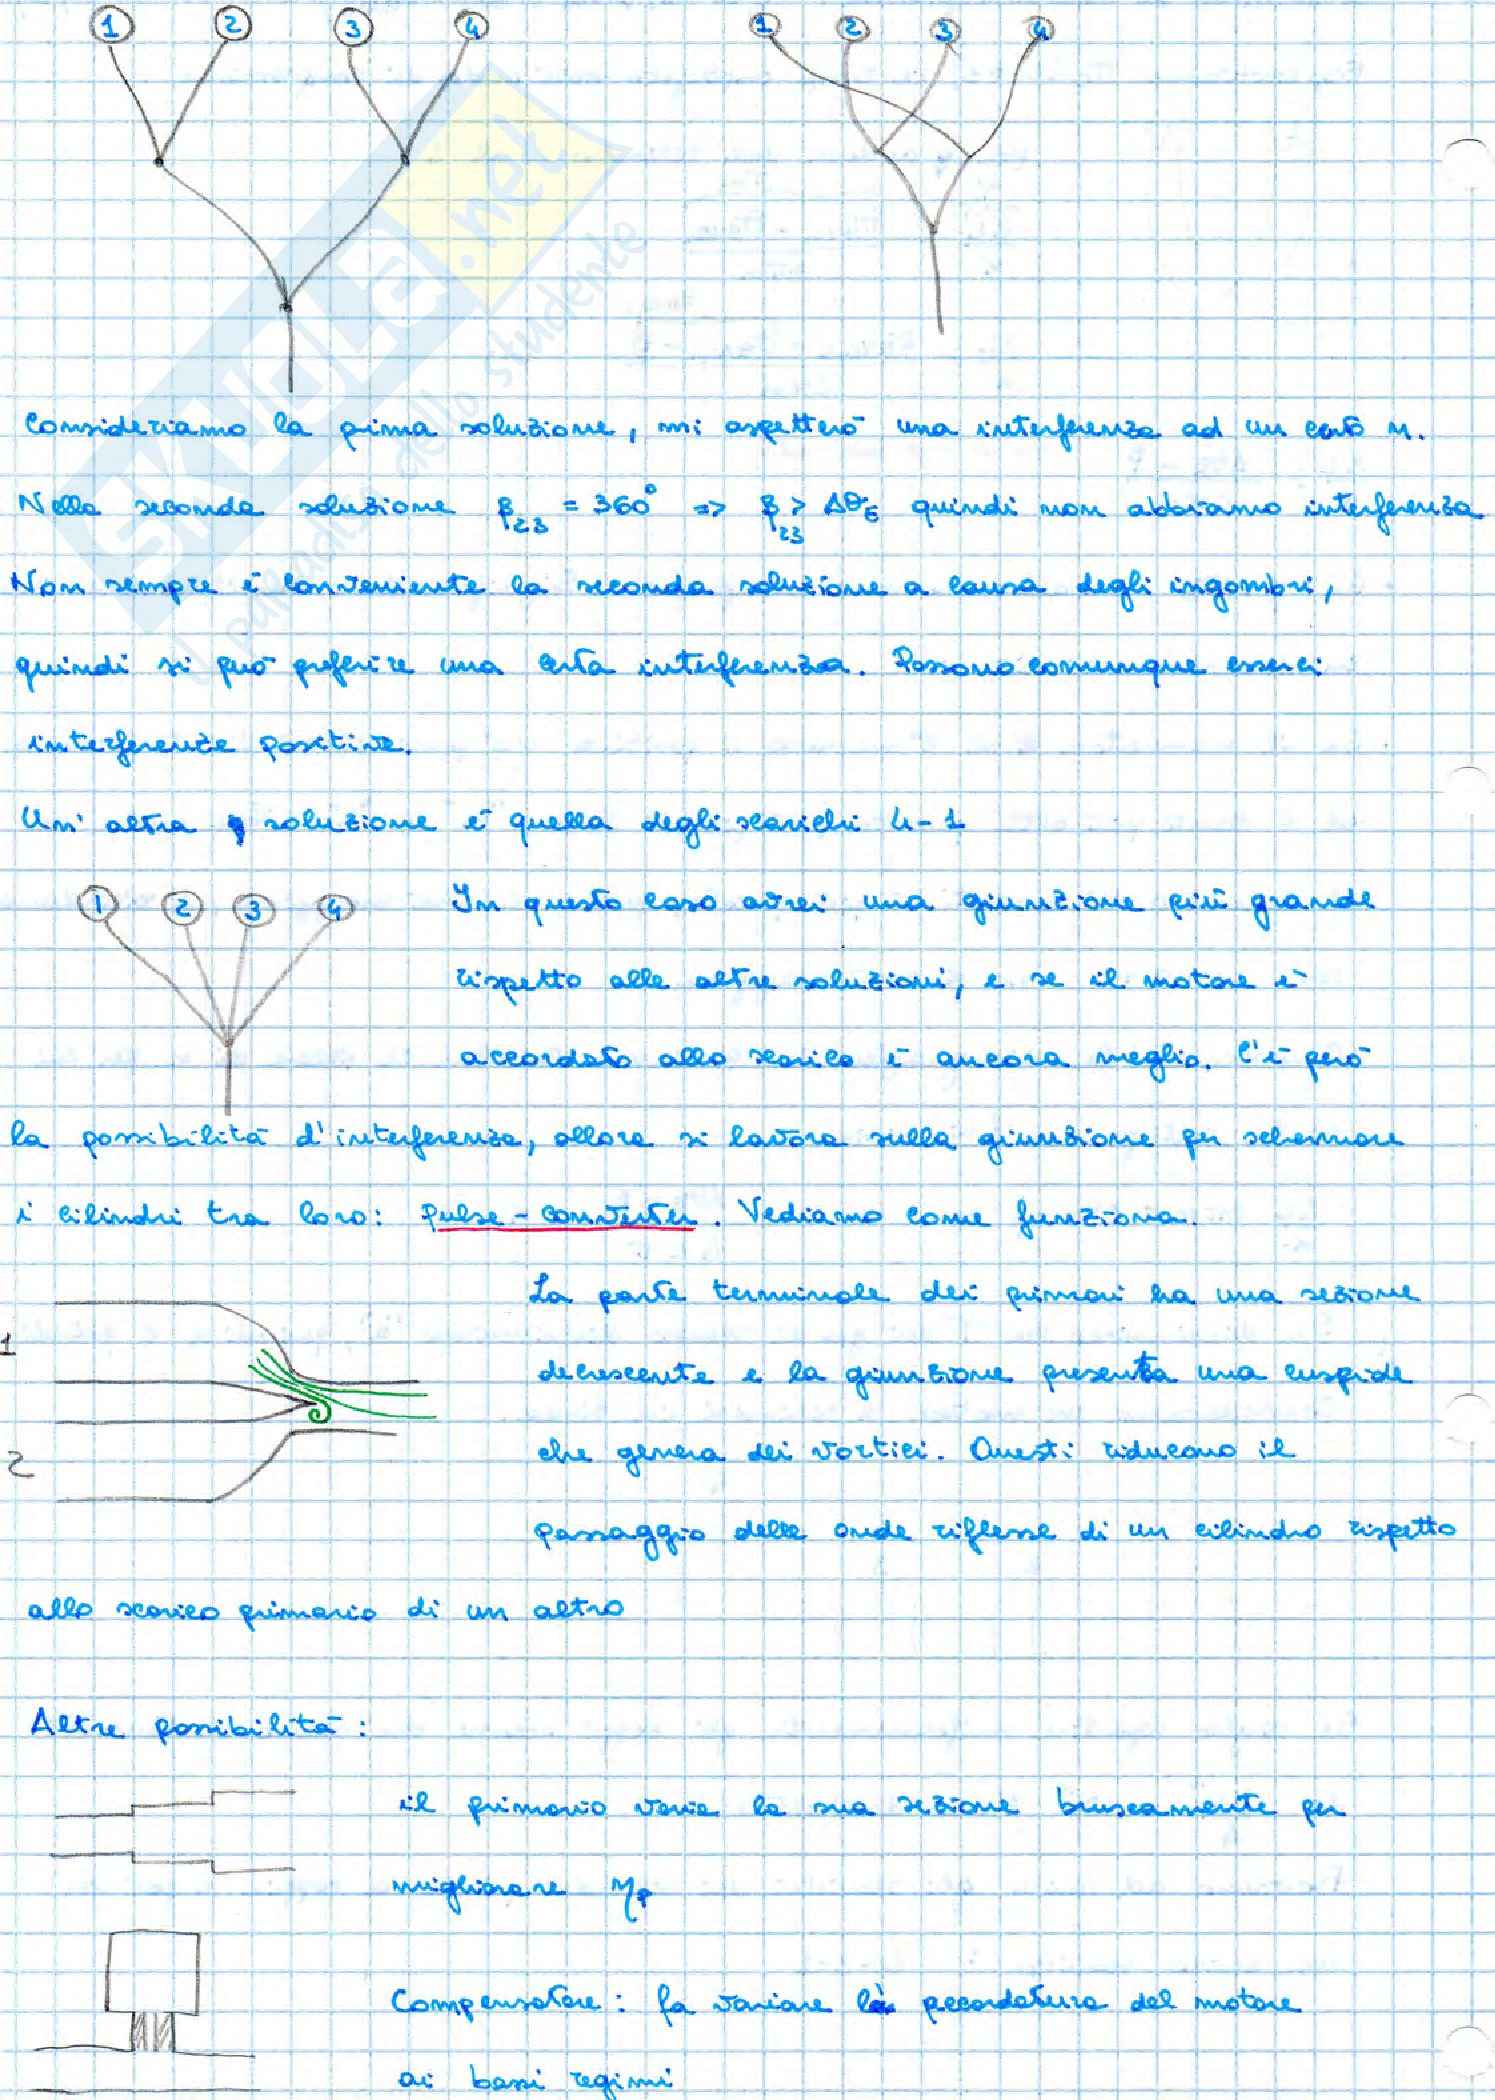 1 2 3 4 1 2 3 4
SKUOLA.net
il paradiso dello studente
Consideriamo la prima soluzione, mi aspetterò una interferenza ad un certo n.
Nella seconda soluzione β₂₃ = 360° => β₂₃ > Δθ_E quindi non abbiamo interferenza
Non sempre è conveniente la seconda soluzione a causa degli ingombri,
quindi si può preferire una certa interferenza. Possono comunque esserci
interferenze positive.
Un' altra soluzione è quella degli scarichi 4-1
1 2 3 4
In questo caso avrei una giunzione più grande
rispetto alle altre soluzioni, e se il motore è
accordato allo scarico è ancora meglio. C'è però
la possibilità d'interferenza, allora si lavora sulla giunzione per schermare
i cilindri tra loro: Pulse-converter. Vediamo come funziona.
La parte terminale dei primari ha una sezione
1
decrescente e la giunzione presenta una cuspide
2
che genera dei vortici. Questi riducono il
passaggio delle onde riflesse di un cilindro rispetto
allo scarico primario di un altro
Altre possibilità:
il primario varia la sua sezione bruscamente per
migliorare ηp
Compensatore: fa variare la accordatura del motore
ai bassi regimi